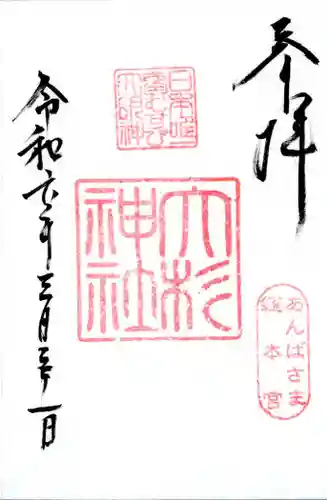 参拝
日本唯一
夢むすび
大明神
大杉
神社
あんばさま
総本宮
令和六年三月三十一日